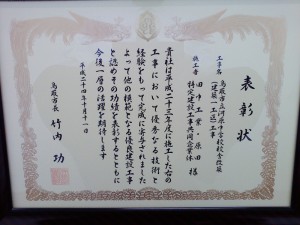 表彰状
工事名
鳥取市立河原中学校校舎改築
(建築一工区)工事
施工者
田中工業・原田
特定建設工事共同企業体 様
貴社は平成二十三年度に施工した右の
工事において優秀なる技術と
経験をもって完成に寄与されました
よって他の模範となる優良建設工事
と認めその功績を表彰するとともに
今後一層の活躍を期待します
平成二十四年十月十一日
鳥取市長 竹内 功